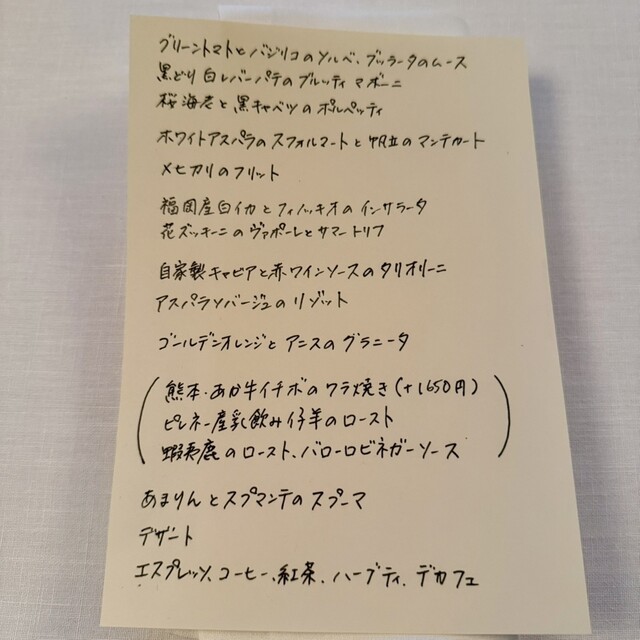 グリーントマトとバジリコのソルベ、ブッラータのムース
黒どり白レバーパテのブルッティマボーニ
桜海老と黒キャベツのポルペッティ
ホワイトアスパラのスフォルマートと帆立のマンテカート
メヒカリのフリット
福岡産白イカとフィノッキオのインサラータ
花ズッキーニのヴァポーレとサマートリフ
自家製キャビアと赤ワインソースのタリオリーニ
アスパラソバージュのリゾット
ゴールデンオレンジとアニスのグラニータ
(熊本・あか牛イチボのワラ焼き(+1,650円)
ピレネー産乳飲み仔羊のロースト
蝦夷鹿のロースト、バローロビネガーソース)
あまりんとスプマンテのスプーマ
デザート
エスプレッソ、コーヒー、紅茶、ハーブティ、デカフェ